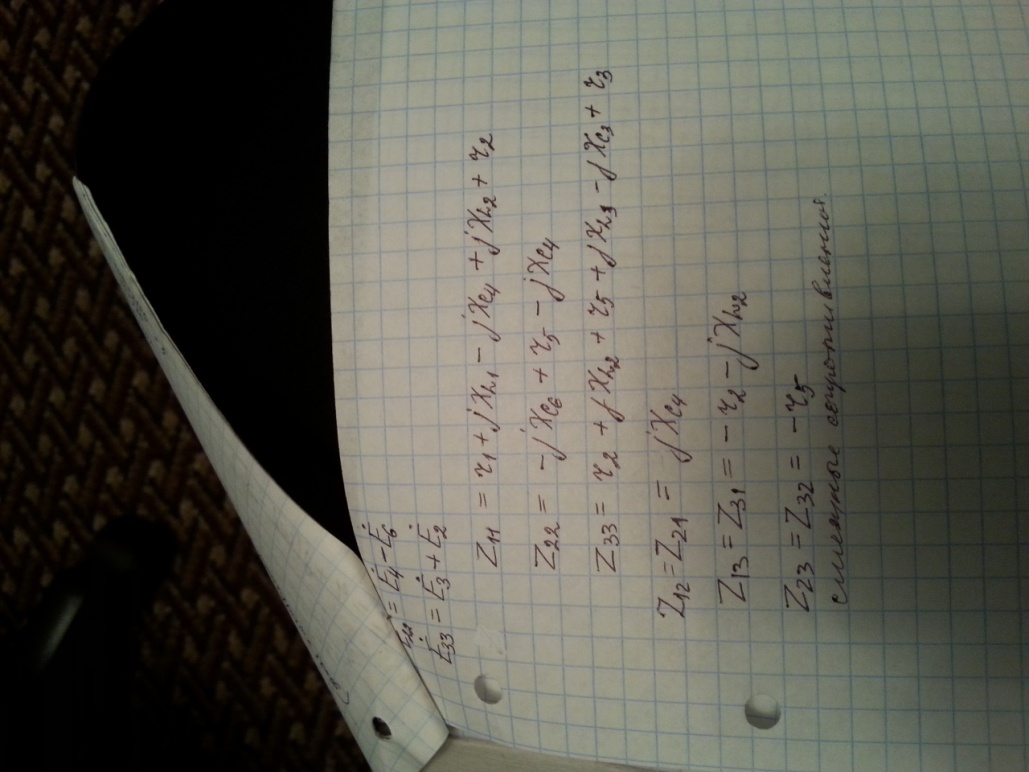 Ė22 = Ė4 - Ė6
Ė33 = Ė3 + Ė2
Z11 = r1 + jXL1 - jXC4 + jXL2 + r2
Z22 = -jXC6 + r5 - jXC4
Z33 = r2 + jXL2 + r5 + jXL3 - jXC3 + r3
Z12 = Z21 = jXC4
Z13 = Z31 = -r2 - jXL2
Z23 = Z32 = -r5
смежные сопротивления.